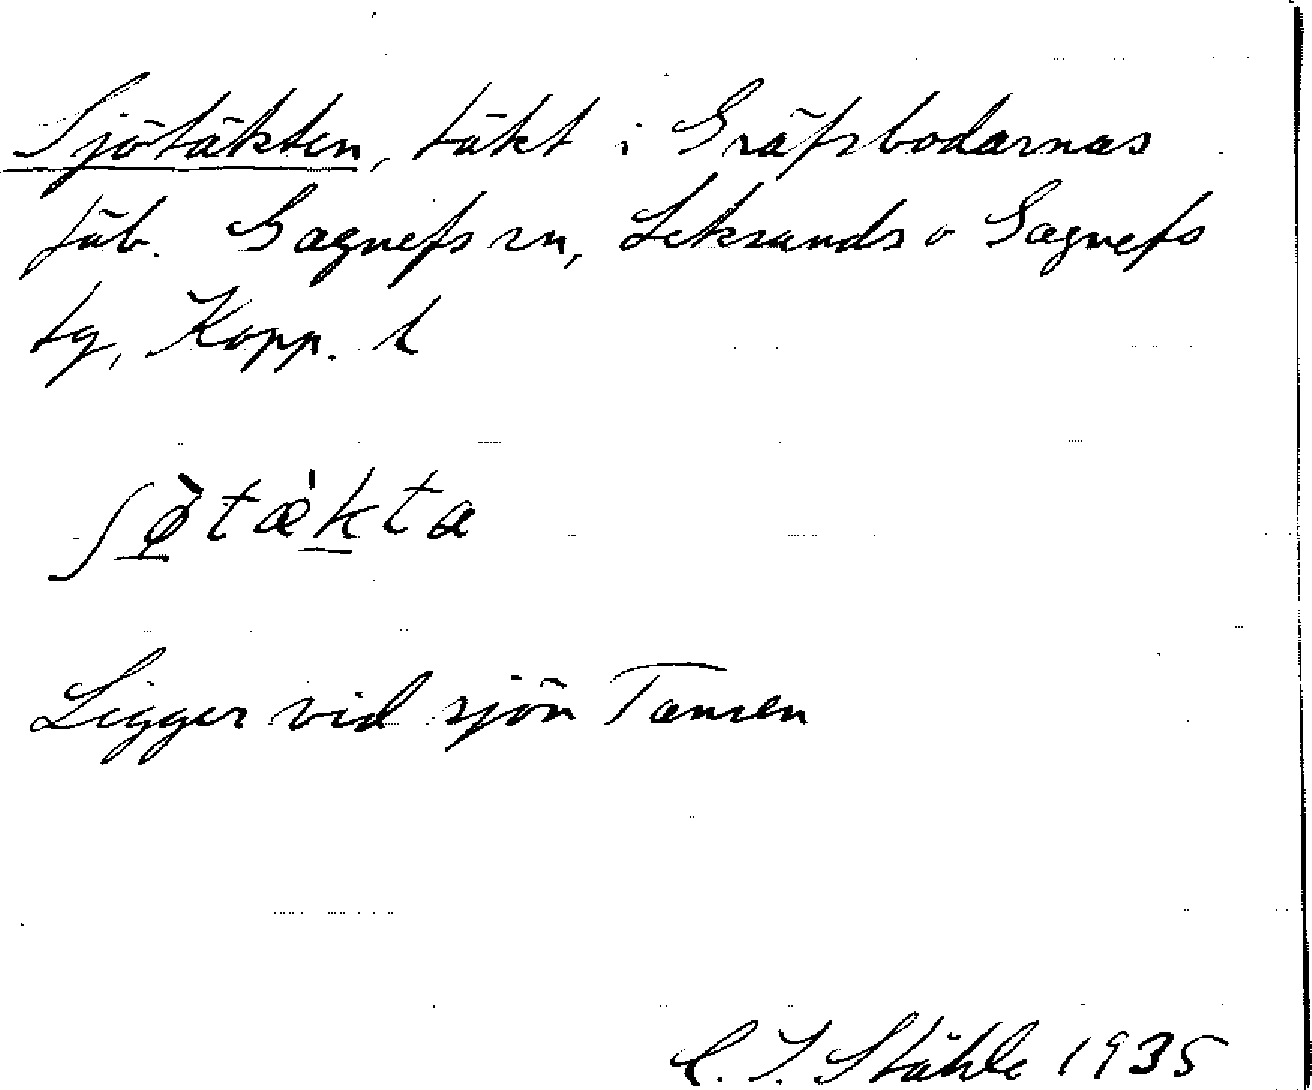 Sjötäkten, täkt i Gräfsbodarnas
fäb. Gagnefs sn, Leksands o Gagnefs
tg, Kopp. l
ʃø̀tæ̀kta
Ligger vid sjön Tansen
C. I. Ståhle 1935